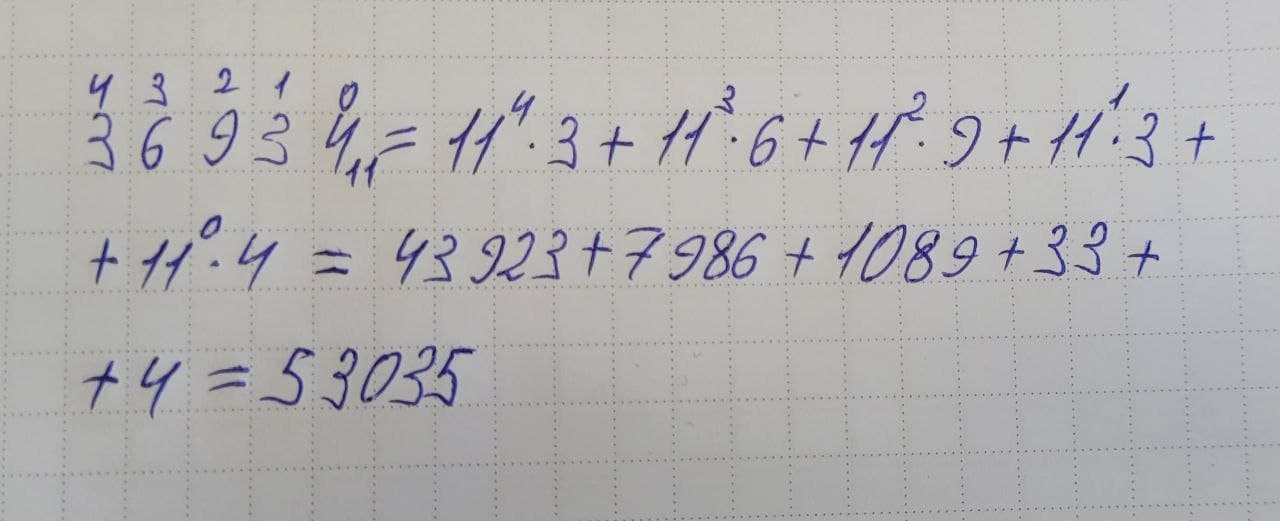 4 3 2 1 0
3 6 9 3 4₁₁ = 11⁴·3 + 11³·6 + 11²·9 + 11¹·3 +
+ 11⁰·4 = 43923 + 7986 + 1089 + 33 +
+ 4 = 53035